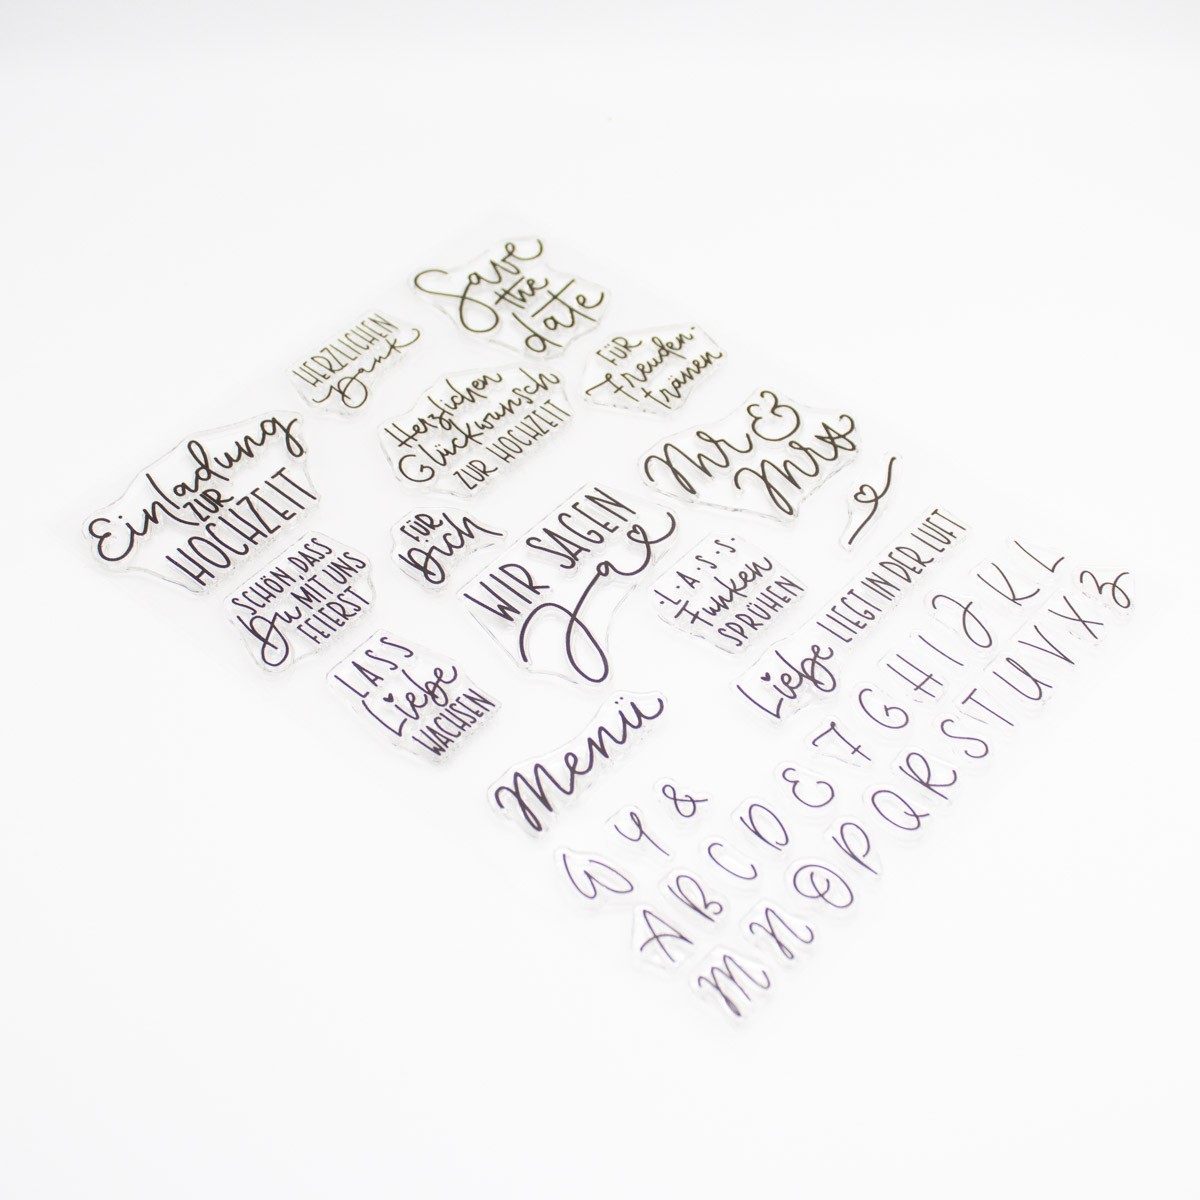 Save
the
date
HERZLICHEN
Dank
FÜR
Freuden-
tränen
Herzlichen
Glückwunsch
ZUR HOCHZEIT
Mr &
Mrs
Einladung
ZUR
HOCHZEIT
FÜR
Dich
WIR SAGEN
Ja
SCHÖN, DASS
Du MIT UNS
FEIERST
L·A·S·S·
Funken
SPRÜHEN
Liebe LIEGT IN DER LUFT
LASS
Liebe
WACHSEN
Menü
W Y &
A B C D E F G H I J K L
M N O P Q R S T U V X Z